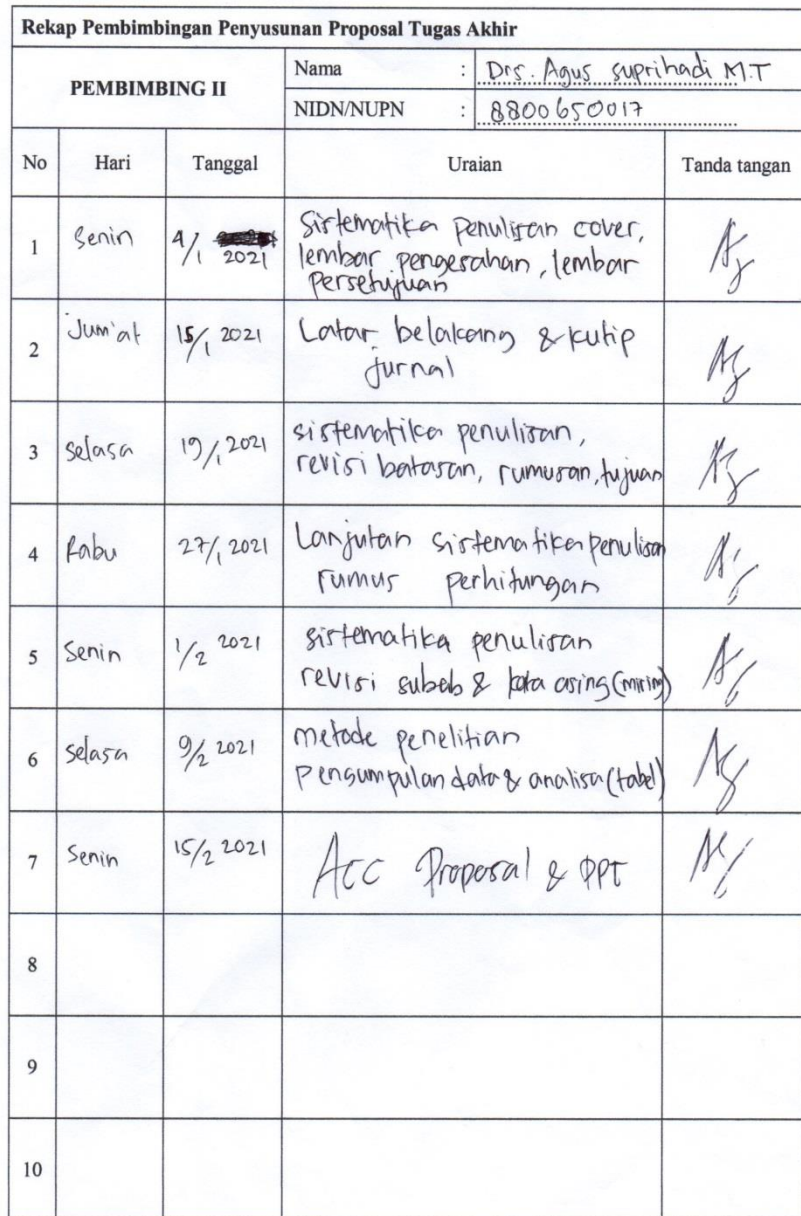 Rekap Pembimbingan Penyusunan Proposal Tugas Akhir
PEMBIMBING II
Nama : Drs. Agus suprihadi M.T
NIDN/NUPN : 8800650017
No Hari Tanggal Uraian Tanda tangan
1 Senin 4/1 2021 Sistematika penulisan cover,
lembar pengesahan, lembar
Persetujuan
2 Jum'at 15/1 2021 Latar belakang & kutip
jurnal
3 selasa 19/1 2021 sistematika penulisan,
revisi batasan, rumusan, tujuan
4 Rabu 27/1 2021 Lanjutan sistematika penulisan
rumus perhitungan
5 Senin 1/2 2021 sistematika penulisan
revisi subab & kata asing (miring)
6 selasa 9/2 2021 metode penelitian
Pengumpulan data & analisa (tabel)
7 Senin 15/2 2021 Acc Proposal & PPT
8
9
10